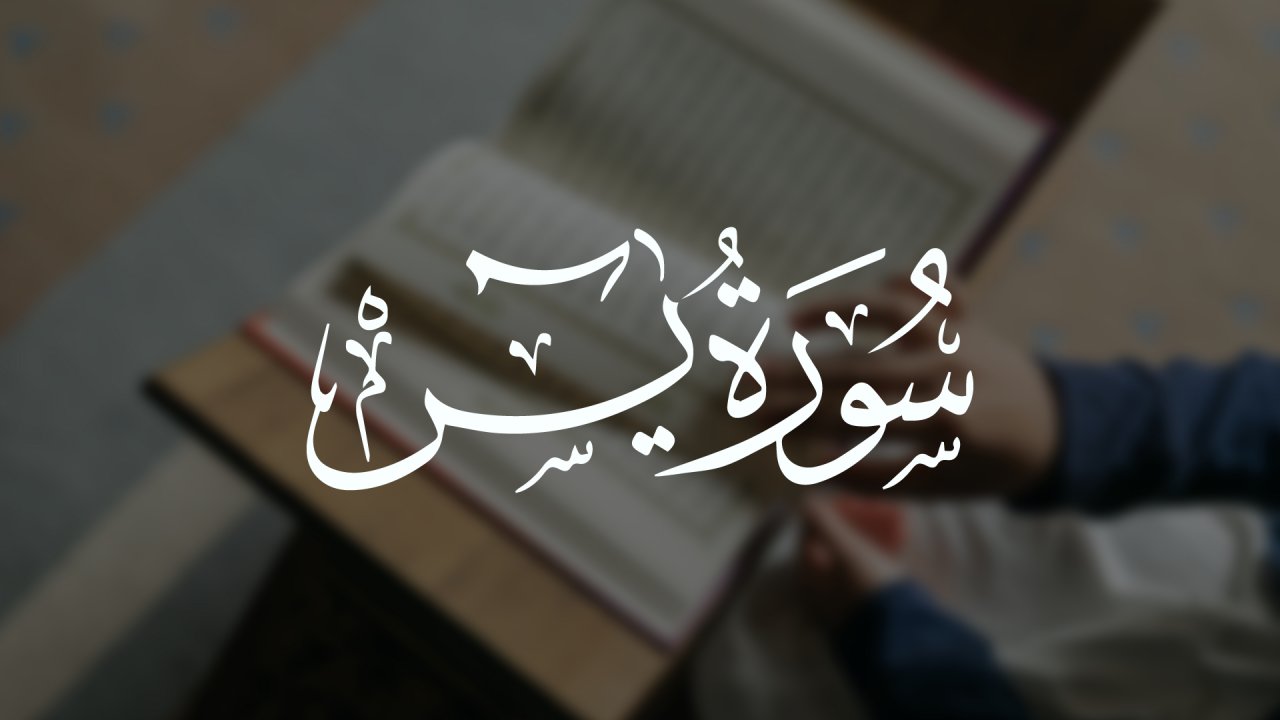 سُورَةُ يسٓ